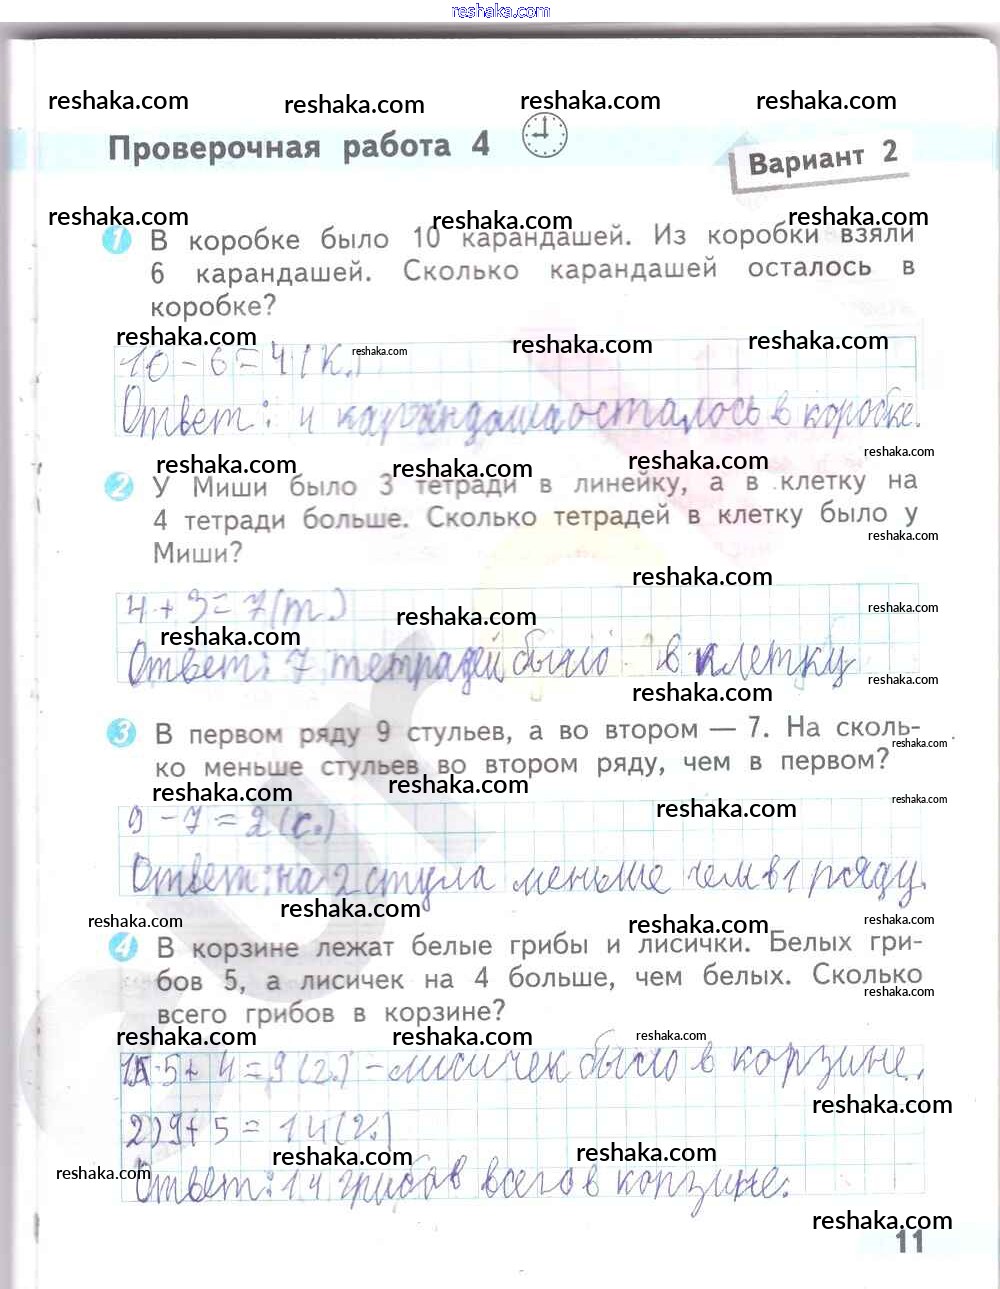 reshaka.com
reshaka.com reshaka.com reshaka.com reshaka.com
Проверочная работа 4
Вариант 2
reshaka.com reshaka.com reshaka.com
1 В коробке было 10 карандашей. Из коробки взяли
6 карандашей. Сколько карандашей осталось в
коробке?
reshaka.com reshaka.com reshaka.com reshaka.com
10 - 6 = 4 (к.)
Ответ: 4 карандаша осталось в коробке.
reshaka.com reshaka.com reshaka.com reshaka.com
2 У Миши было 3 тетради в линейку, а в клетку на
4 тетради больше. Сколько тетрадей в клетку было у
Миши?
reshaka.com
reshaka.com
4 + 3 = 7 (т.)
reshaka.com reshaka.com reshaka.com
Ответ: 7 тетрадей было в клетку
reshaka.com reshaka.com
3 В первом ряду 9 стульев, а во втором — 7. На сколь-
ко меньше стульев во втором ряду, чем в первом?
reshaka.com
reshaka.com reshaka.com reshaka.com reshaka.com
9 - 7 = 2 (с.)
Ответ: на 2 стула меньше чем в 1 ряду.
reshaka.com reshaka.com reshaka.com reshaka.com
4 В корзине лежат белые грибы и лисички. Белых гри-
бов 5, а лисичек на 4 больше, чем белых. Сколько
всего грибов в корзине?
reshaka.com
reshaka.com reshaka.com reshaka.com
5 + 4 = 9 (г.) - лисичек было в корзине.
reshaka.com
2) 9 + 5 = 14 (г.)
reshaka.com reshaka.com reshaka.com
Ответ: 14 грибов всего в корзине.
reshaka.com
11